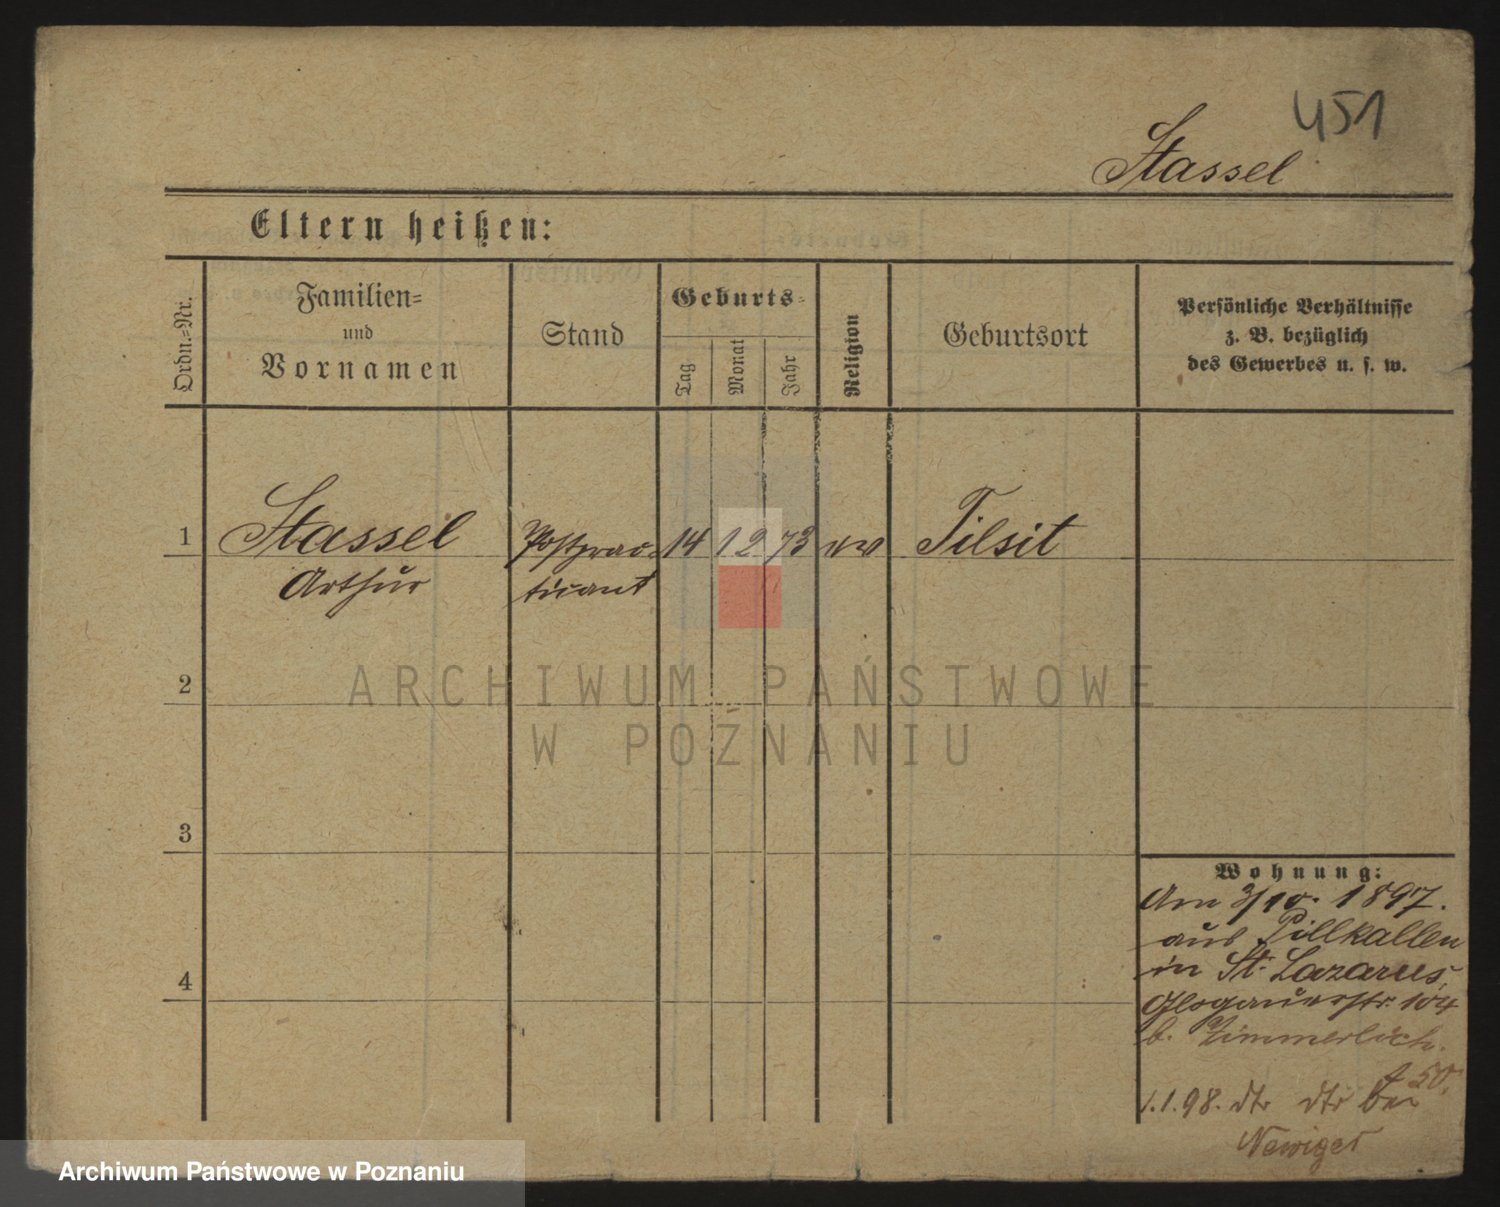 451
Stassel
Eltern heißen:
Ordn.=Nr.
Familien=
und
Vornamen
Stand
Geburts=
Tag
Monat
Jahr
Religion
Geburtsort
Persönliche Verhältnisse
z. B. bezüglich
des Gewerbes u. s. w.
1
Stassel
Arthur
Postprac=
ticant
14
12
73
ev
Tilsit
2
ARCHIWUM PAŃSTWOWE
W POZNANIU
3
4
Wohnung:
Am 3/10. 1897.
aus Pillkallen
in St. Lazarus,
Glogauerstr. 104
b. Zimmerlich.
1.1.98. dto dto bei
Newiger
Archiwum Państwowe w Poznaniu